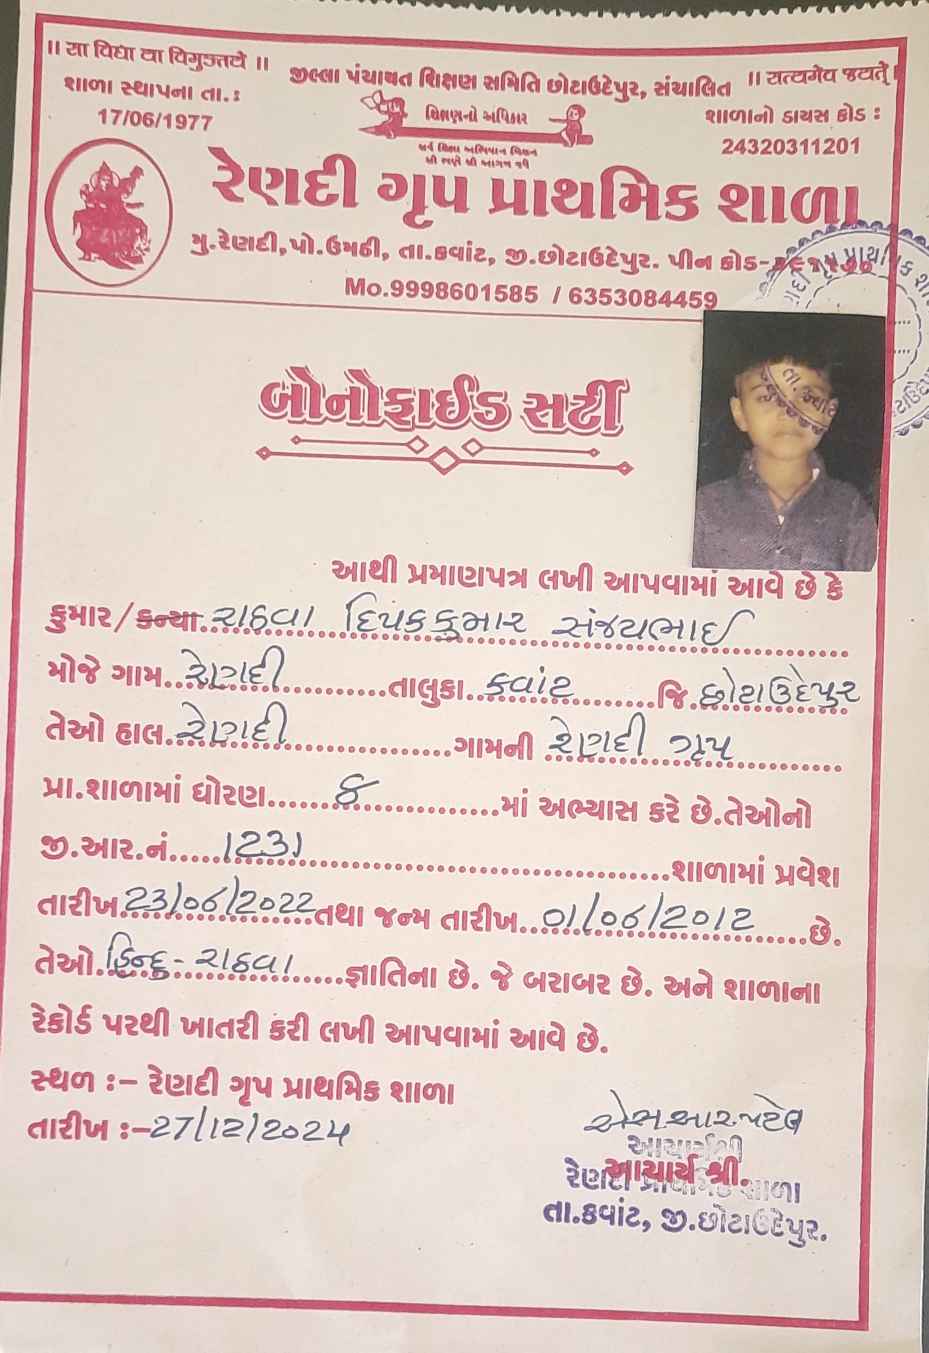 ॥ सा विद्या या विमुक्तये ॥
જીલ્લા પંચાયત શિક્ષણ સમિતિ છોટાઉદેપુર, સંચાલિત
॥ सत्यमेव जयते ॥
શાળા સ્થાપના તા.:
17/06/1977
શિક્ષણનો અધિકાર
શાળાનો ડાયસ કોડ :
24320311201
સર્વ શિક્ષા અભિયાન મિશન
સૌ ભણે સૌ આગળ વધે
રેણદી ગૃપ પ્રાથમિક શાળા
મુ.રેણદી,પો.ઉમઠી, તા.કવાંટ, જી.છોટાઉદેપુર. પીન કોડ-
Mo.9998601585 / 6353084459
બોનોફાઈડ સર્ટી
આથી પ્રમાણપત્ર લખી આપવામાં આવે છે કે
કુમાર/કન્યા..રાઠવા દિપકકુમાર સંજયભાઈ
મોજે ગામ..રેણદી તાલુકા..કવાંટ જિ.છોટાઉદેપુર
તેઓ હાલ.રેણદી ગામની રેણદી ગૃપ
પ્રા.શાળામાં ધોરણ 8 માં અભ્યાસ કરે છે.તેઓનો
જી.આર.નં. 1231 શાળામાં પ્રવેશ
તારીખ 23/06/2022 તથા જન્મ તારીખ 01/06/2012 છે.
તેઓ હિન્દુ - રાઠવા જ્ઞાતિના છે. જે બરાબર છે. અને શાળાના
રેકોર્ડ પરથી ખાતરી કરી લખી આપવામાં આવે છે.
સ્થળ :- રેણદી ગૃપ પ્રાથમિક શાળા
તારીખ :-27/12/2024
એસ.આર.પટેલ
આચાર્યશ્રી
આચાર્ય શ્રી.
રેણદી પ્રાથમિક શાળા
તા.કવાંટ, જી.છોટાઉદેપુર.